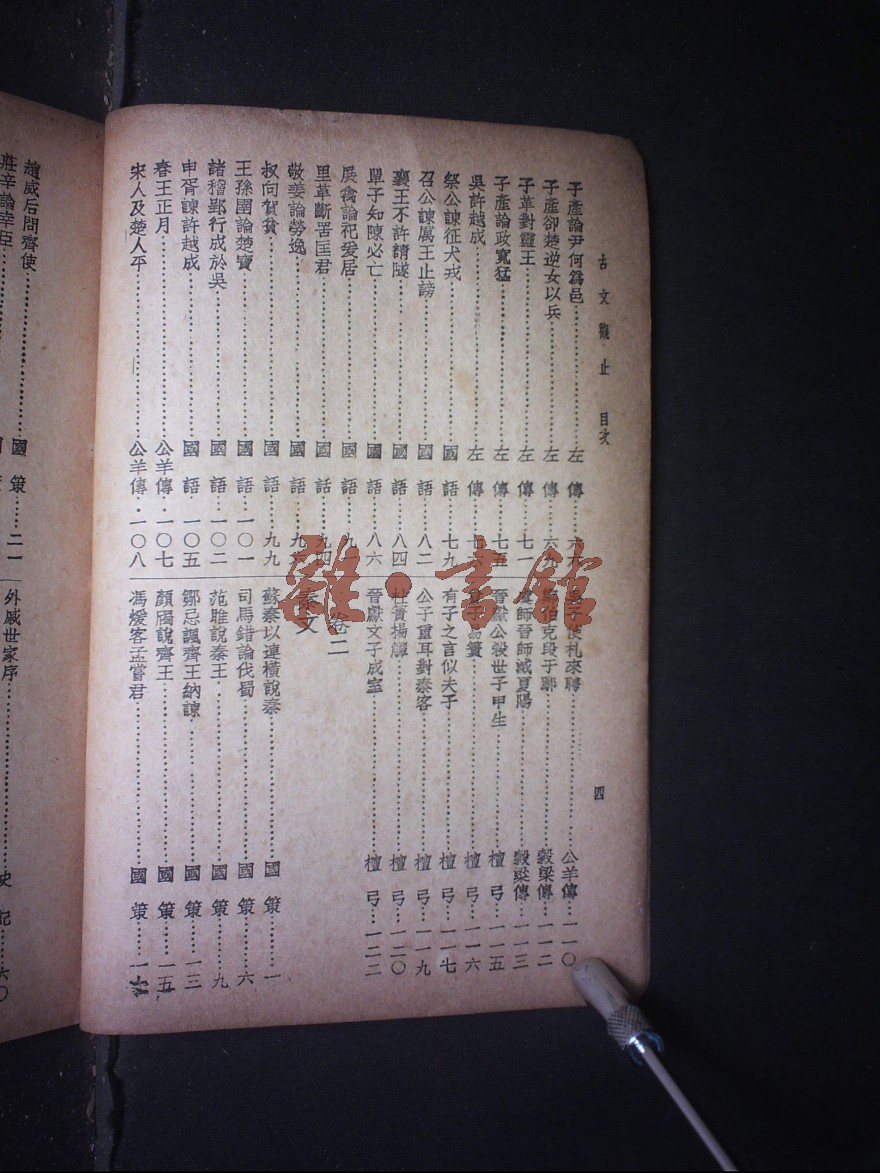 古文觀止 目次
四
子產論尹何為邑……左傳……六
子產卻楚逆女以兵……左傳……六九
子革對靈王……左傳……七一
子產論政寬猛……左傳……七五
吳許越成……左傳……七
祭公諫征犬戎……國語……七九
召公諫厲王止謗……國語……八二
襄王不許請隧……國語……八四
單子知陳必亡……國語……八六
展禽論祀爰居……國語……九一
里革斷罟匡君……國話……九四
敬姜論勞逸……國語……九六
叔向賀貧……國語……九九
王孫圉論楚寶……國語……一〇一
諸稽郢行成於吳……國語……一〇二
申胥諫許越成……國語……一〇五
春王正月……公羊傳・一〇七
宋人及楚人平……公羊傳・一〇八
子使札來聘……公羊傳……一一〇
伯克段于鄢……穀梁傳……一一二
虞師晉師滅夏陽……穀梁傳……一一三
晉獻公殺世子申生……檀弓……一一五
易簀……檀弓……一一六
有子之言似夫子……檀弓……一一七
公子重耳對秦客……檀弓……一一九
杜蕢揚觶……檀弓……一二〇
晉獻文子成室……檀弓……一二二
卷二
秦文
蘇秦以連橫說秦……國策……一
司馬錯論伐蜀……國策……六
范雎說秦王……國策……九
鄒忌諷齊王納諫……國策……一三
顏斶說齊王……國策……一五
馮煖客孟嘗君……國策……一
趙威后問齊使……國策……二一
莊辛論幸臣
外戚世家序……史記……六〇
雜・書館